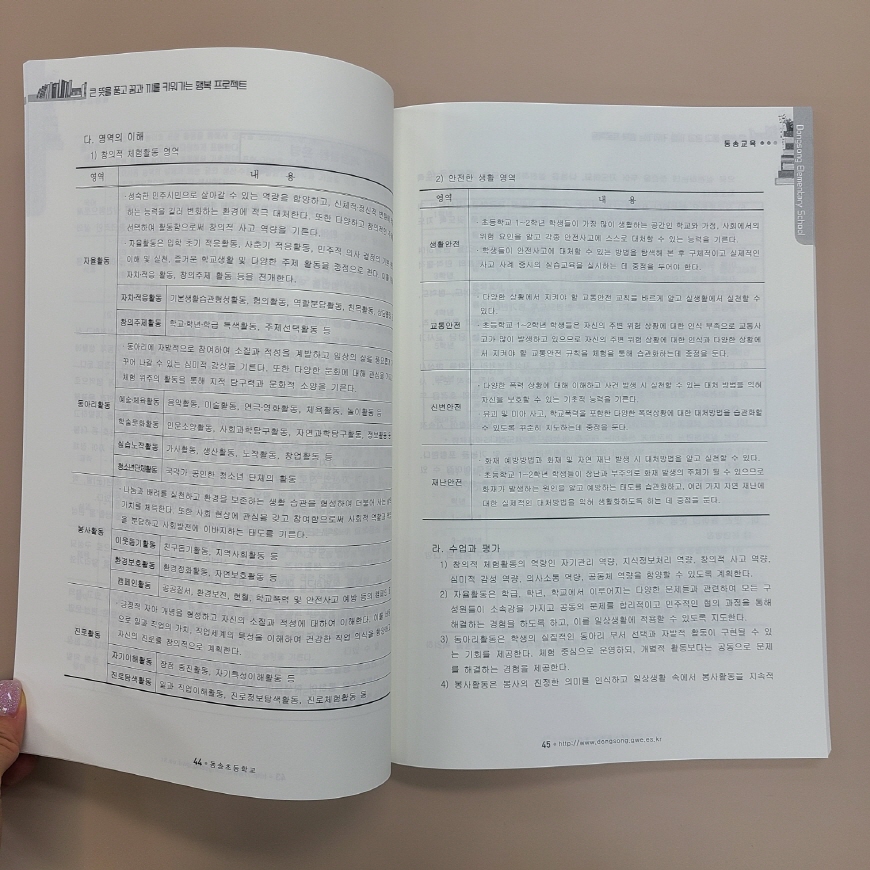 큰 뜻을 품고 꿈과 끼를 키워가는 행복 프로젝트
다. 영역의 이해
1) 창의적 체험활동 영역
영역
내 용
자율활동
· 성숙한 민주시민으로 살아갈 수 있는 역량을 함양하고, 신체적·정신적 변화에
하는 능력을 길러 변화하는 환경에 적극 대처한다. 또한 다양하고 창의적인
선택하여 활동함으로써 창의적 사고 역량을 기른다.
· 자율활동은 입학 초기 적응활동, 사춘기 적응활동, 민주적 의사 결정의
이해 및 실천, 즐거운 학교생활 및 다양한 주제 활동을 중점으로 한다.
자치·적응 활동, 창의주제 활동 등을 전개한다.
자치적응활동 기본생활습관형성활동, 협의활동, 역할분담활동, 친목활동, 상담활동
창의주제활동 학교·학년·학급 특색활동, 주제선택활동 등
동아리활동
· 동아리에 자발적으로 참여하여 소질과 적성을 계발하고 일상의 삶을 풍요롭게
꾸어 나갈 수 있는 심미적 감성을 기른다. 또한 다양한 문화에 대해 관심을
체험 위주의 활동을 통해 지적 탐구력과 문화적 소양을 기른다.
예술·체육활동 음악활동, 미술활동, 연극·영화활동, 체육활동, 놀이활동 등
학술문화활동 인문소양활동, 사회과학탐구활동, 자연과학탐구활동, 정보활동
실습노작활동 가사활동, 생산활동, 노작활동, 창업활동 등
청소년단체활동 국가가 공인한 청소년 단체의 활동
봉사활동
· 나눔과 배려를 실천하고 환경을 보존하는 생활 습관을 형성하여 더불어 사는
가치를 체득한다. 또한 사회 현상에 관심을 갖고 참여함으로써 사회적 역할과
을 분담하고 사회발전에 이바지하는 태도를 기른다.
이웃돕기활동 친구돕기활동, 지역사회활동 등
환경보호활동 환경정화활동, 자연보호활동 등
캠페인활동 공공질서, 환경보전, 헌혈, 학교폭력 및 안전사고 예방 등의
진로활동
· 긍정적 자아 개념을 형성하고 자신의 소질과 적성에 대하여 이해한다. 이를
으로 일과 직업의 가치, 직업세계의 특성을 이해하여 건강한 직업 의식을
자신의 진로를 창의적으로 계획한다.
자기이해활동 강점 증진활동, 자기특성이해활동 등
진로탐색활동 일과 직업이해활동, 진로정보탐색활동, 진로체험활동 등
44 • 동송초등학교
동송교육
Dongsong Elementary School
2) 안전한 생활 영역
영역
내 용
생활안전
· 초등학교 1~2학년 학생들이 가장 많이 생활하는 공간인 학교와 가정, 사회에서의
위험 요인을 알고 각종 안전사고에 스스로 대처할 수 있는 능력을 기른다.
· 학생들이 안전사고에 대처할 수 있는 방법을 탐색해 본 후 구체적이고 실제적인
사고 사례 중심의 실습교육을 실시하는 데 중점을 두어야 한다.
교통안전
· 다양한 상황에서 지켜야 할 교통안전 규칙을 바르게 알고 실생활에서 실천할 수
있다.
· 초등학교 1~2학년 학생들은 자신의 주변 위험 상황에 대한 인식 부족으로 교통사
고가 많이 발생하고 있으므로 자신의 주변 위험 상황에 대한 인식과 다양한 상황에
서 지켜야 할 교통안전 규칙을 체험을 통해 습관화하는데 중점을 둔다.
신변안전
· 다양한 폭력 상황에 대해 이해하고 사건 발생 시 실천할 수 있는 대처 방법을 익혀
자신을 보호할 수 있는 기초적 능력을 기른다.
· 유괴 및 미아 사고, 학교폭력을 포함한 다양한 폭력상황에 대한 대처방법을 습관화할
수 있도록 꾸준히 지도하는데 중점을 둔다.
재난안전
· 화재 예방방법과 화재 및 자연 재난 발생 시 대처방법을 알고 실천할 수 있다.
· 초등학교 1~2학년 학생들이 장난과 부주의로 화재 발생의 주체가 될 수 있으므로
화재가 발생하는 원인을 알고 예방하는 태도를 습관화하고, 여러 가지 자연 재난에
대한 실제적인 대처방법을 익혀 생활화하도록 하는 데 중점을 둔다.
라. 수업과 평가
1) 창의적 체험활동의 역량인 자기관리 역량, 지식정보처리 역량, 창의적 사고 역량,
심미적 감성 역량, 의사소통 역량, 공동체 역량을 함양할 수 있도록 계획한다.
2) 자율활동은 학급, 학년, 학교에서 이루어지는 다양한 문제들과 관련하여 모든 구
성원들이 소속감을 가지고 공동의 문제를 합리적이고 민주적인 협의 과정을 통해
해결하는 경험을 하도록 하고, 이를 일상생활에 적용할 수 있도록 지도한다.
3) 동아리활동은 학생의 실질적인 동아리 부서 선택과 자발적 활동이 구현될 수 있
는 기회를 제공한다. 체험 중심으로 운영하되, 개별적 활동보다는 공동으로 문제
를 해결하는 경험을 제공한다.
4) 봉사활동은 봉사의 진정한 의미를 인식하고 일상생활 속에서 봉사활동을 지속적
45 • http://www.dongsong.gwe.es.kr